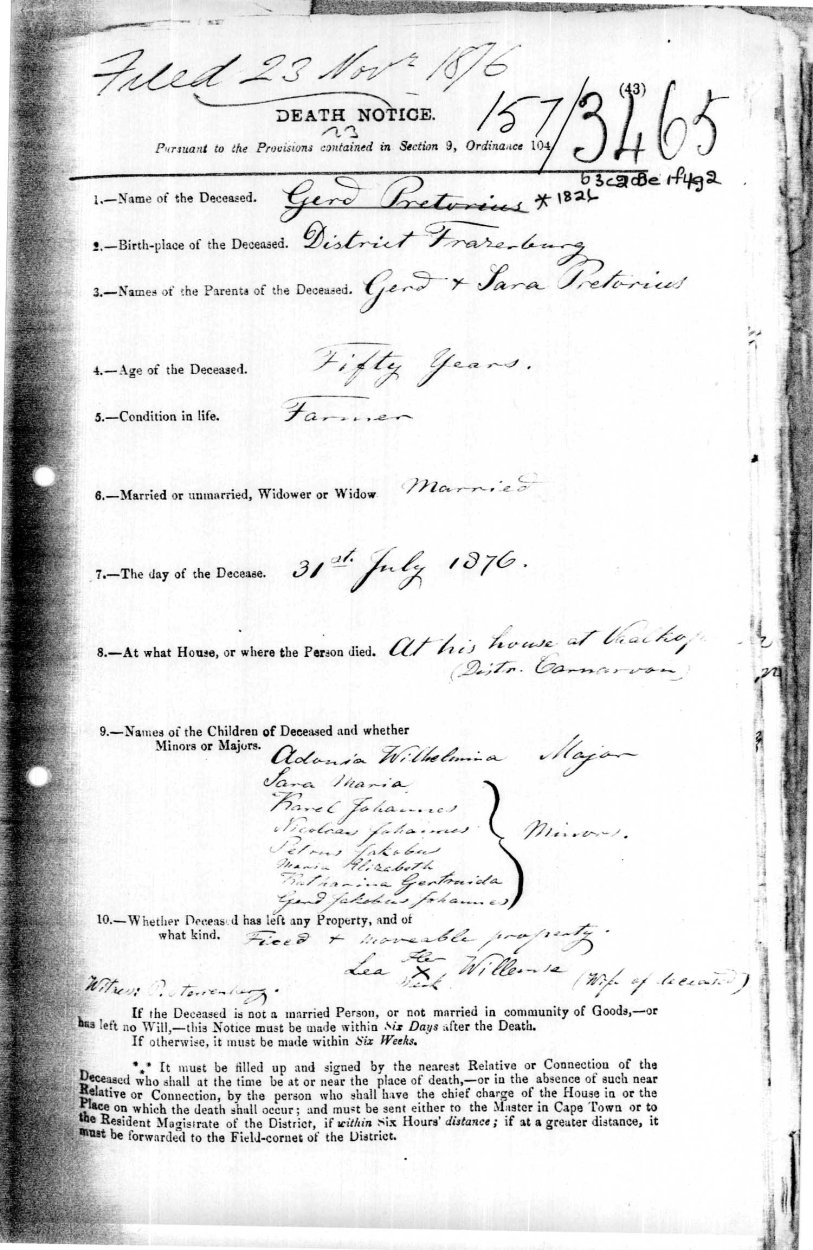 Filed 23 Novr 1876
(43)
DEATH NOTICE.
157/3465
23
Pursuant to the Provisions contained in Section 9, Ordinance 104
b3c2d8e1f4g2
1.—Name of the Deceased. Gerd Pretorius * 1826
2.—Birth-place of the Deceased. District Frazerburg
3.—Names of the Parents of the Deceased. Gerd + Sara Pretorius
4.—Age of the Deceased. Fifty Years.
5.—Condition in life. Farmer
6.—Married or unmarried, Widower or Widow Married
7.—The day of the Decease. 31st. July 1876.
8.—At what House, or where the Person died. At his house at
(Distr. Carnarvon)
9.—Names of the Children of Deceased and whether
Minors or Majors.
Adonia Wilhelmina Major
Sara Maria
Karel Johannes
Nicolaas Johannes Minors.
Petrus Jakobus
Maria Elizabeth
Katharina Gertruida
Gerd Jakobus Johannes
10.—Whether Deceased has left any Property, and of
what kind. Fixed + moveable property.
Lea Her X Willemse (Wife of deceased)
Witness
If the Deceased is not a married Person, or not married in community of Goods,—or
has left no Will,—this Notice must be made within Six Days after the Death.
If otherwise, it must be made within Six Weeks.
*⁎* It must be filled up and signed by the nearest Relative or Connection of the
Deceased who shall at the time be at or near the place of death,—or in the absence of such near
Relative or Connection, by the person who shall have the chief charge of the House in or the
Place on which the death shall occur; and must be sent either to the Master in Cape Town or to
the Resident Magistrate of the District, if within Six Hours' distance; if at a greater distance, it
must be forwarded to the Field-cornet of the District.